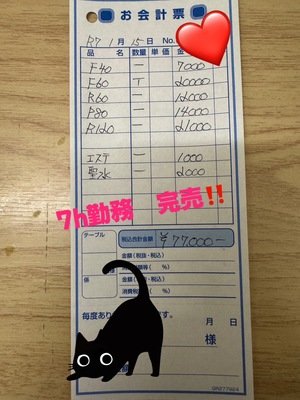 お会計票
R7 1月 15日 No.
品 名 数量 単価 金
F40 一 7000
F60 T 20000
R60 一 12000
P80 一 14000
R120 一 21000
エステ 一 1000
聖水 一 2000
7h勤務 完売‼️
テーブル 税込合計金額 ¥77,000-
金額(税抜・税込)
額等( %)
係 金額(税抜・税込)
消費税 ( %)
毎度あり です。
月 日
様